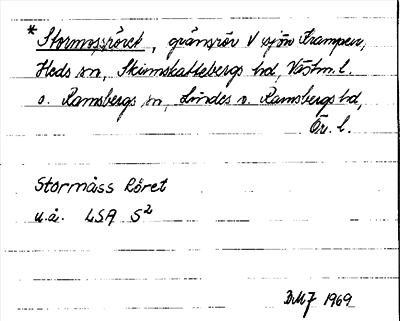 * Stormossröret, gränsrör V sjön Krampen,
Heds sn, Skinnskattebergs hd, Västm. l.
o. Ramsbergs sn, Lindes o. Ramsbergs hd,
Ör. l.
Stormåss Röret
u.å. LSA S2
BMJ 1969